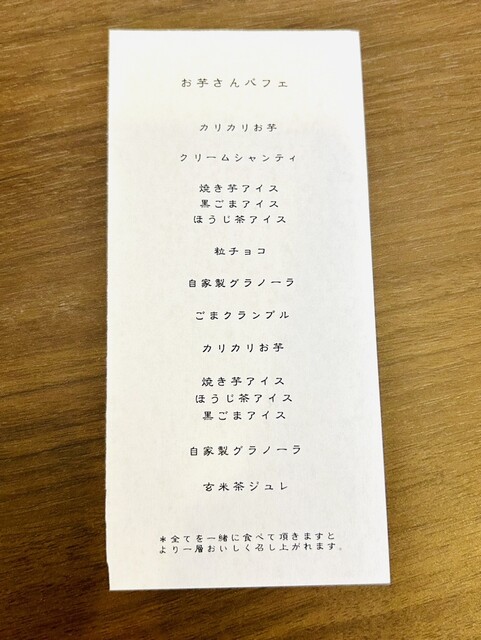 お芋さんパフェ
カリカリお芋
クリームシャンティ
焼き芋アイス
黒ごまアイス
ほうじ茶アイス
粒チョコ
自家製グラノーラ
ごまクランブル
カリカリお芋
焼き芋アイス
ほうじ茶アイス
黒ごまアイス
自家製グラノーラ
玄米茶ジュレ
*全てを一緒に食べて頂きますと
より一層おいしく召し上がれます。